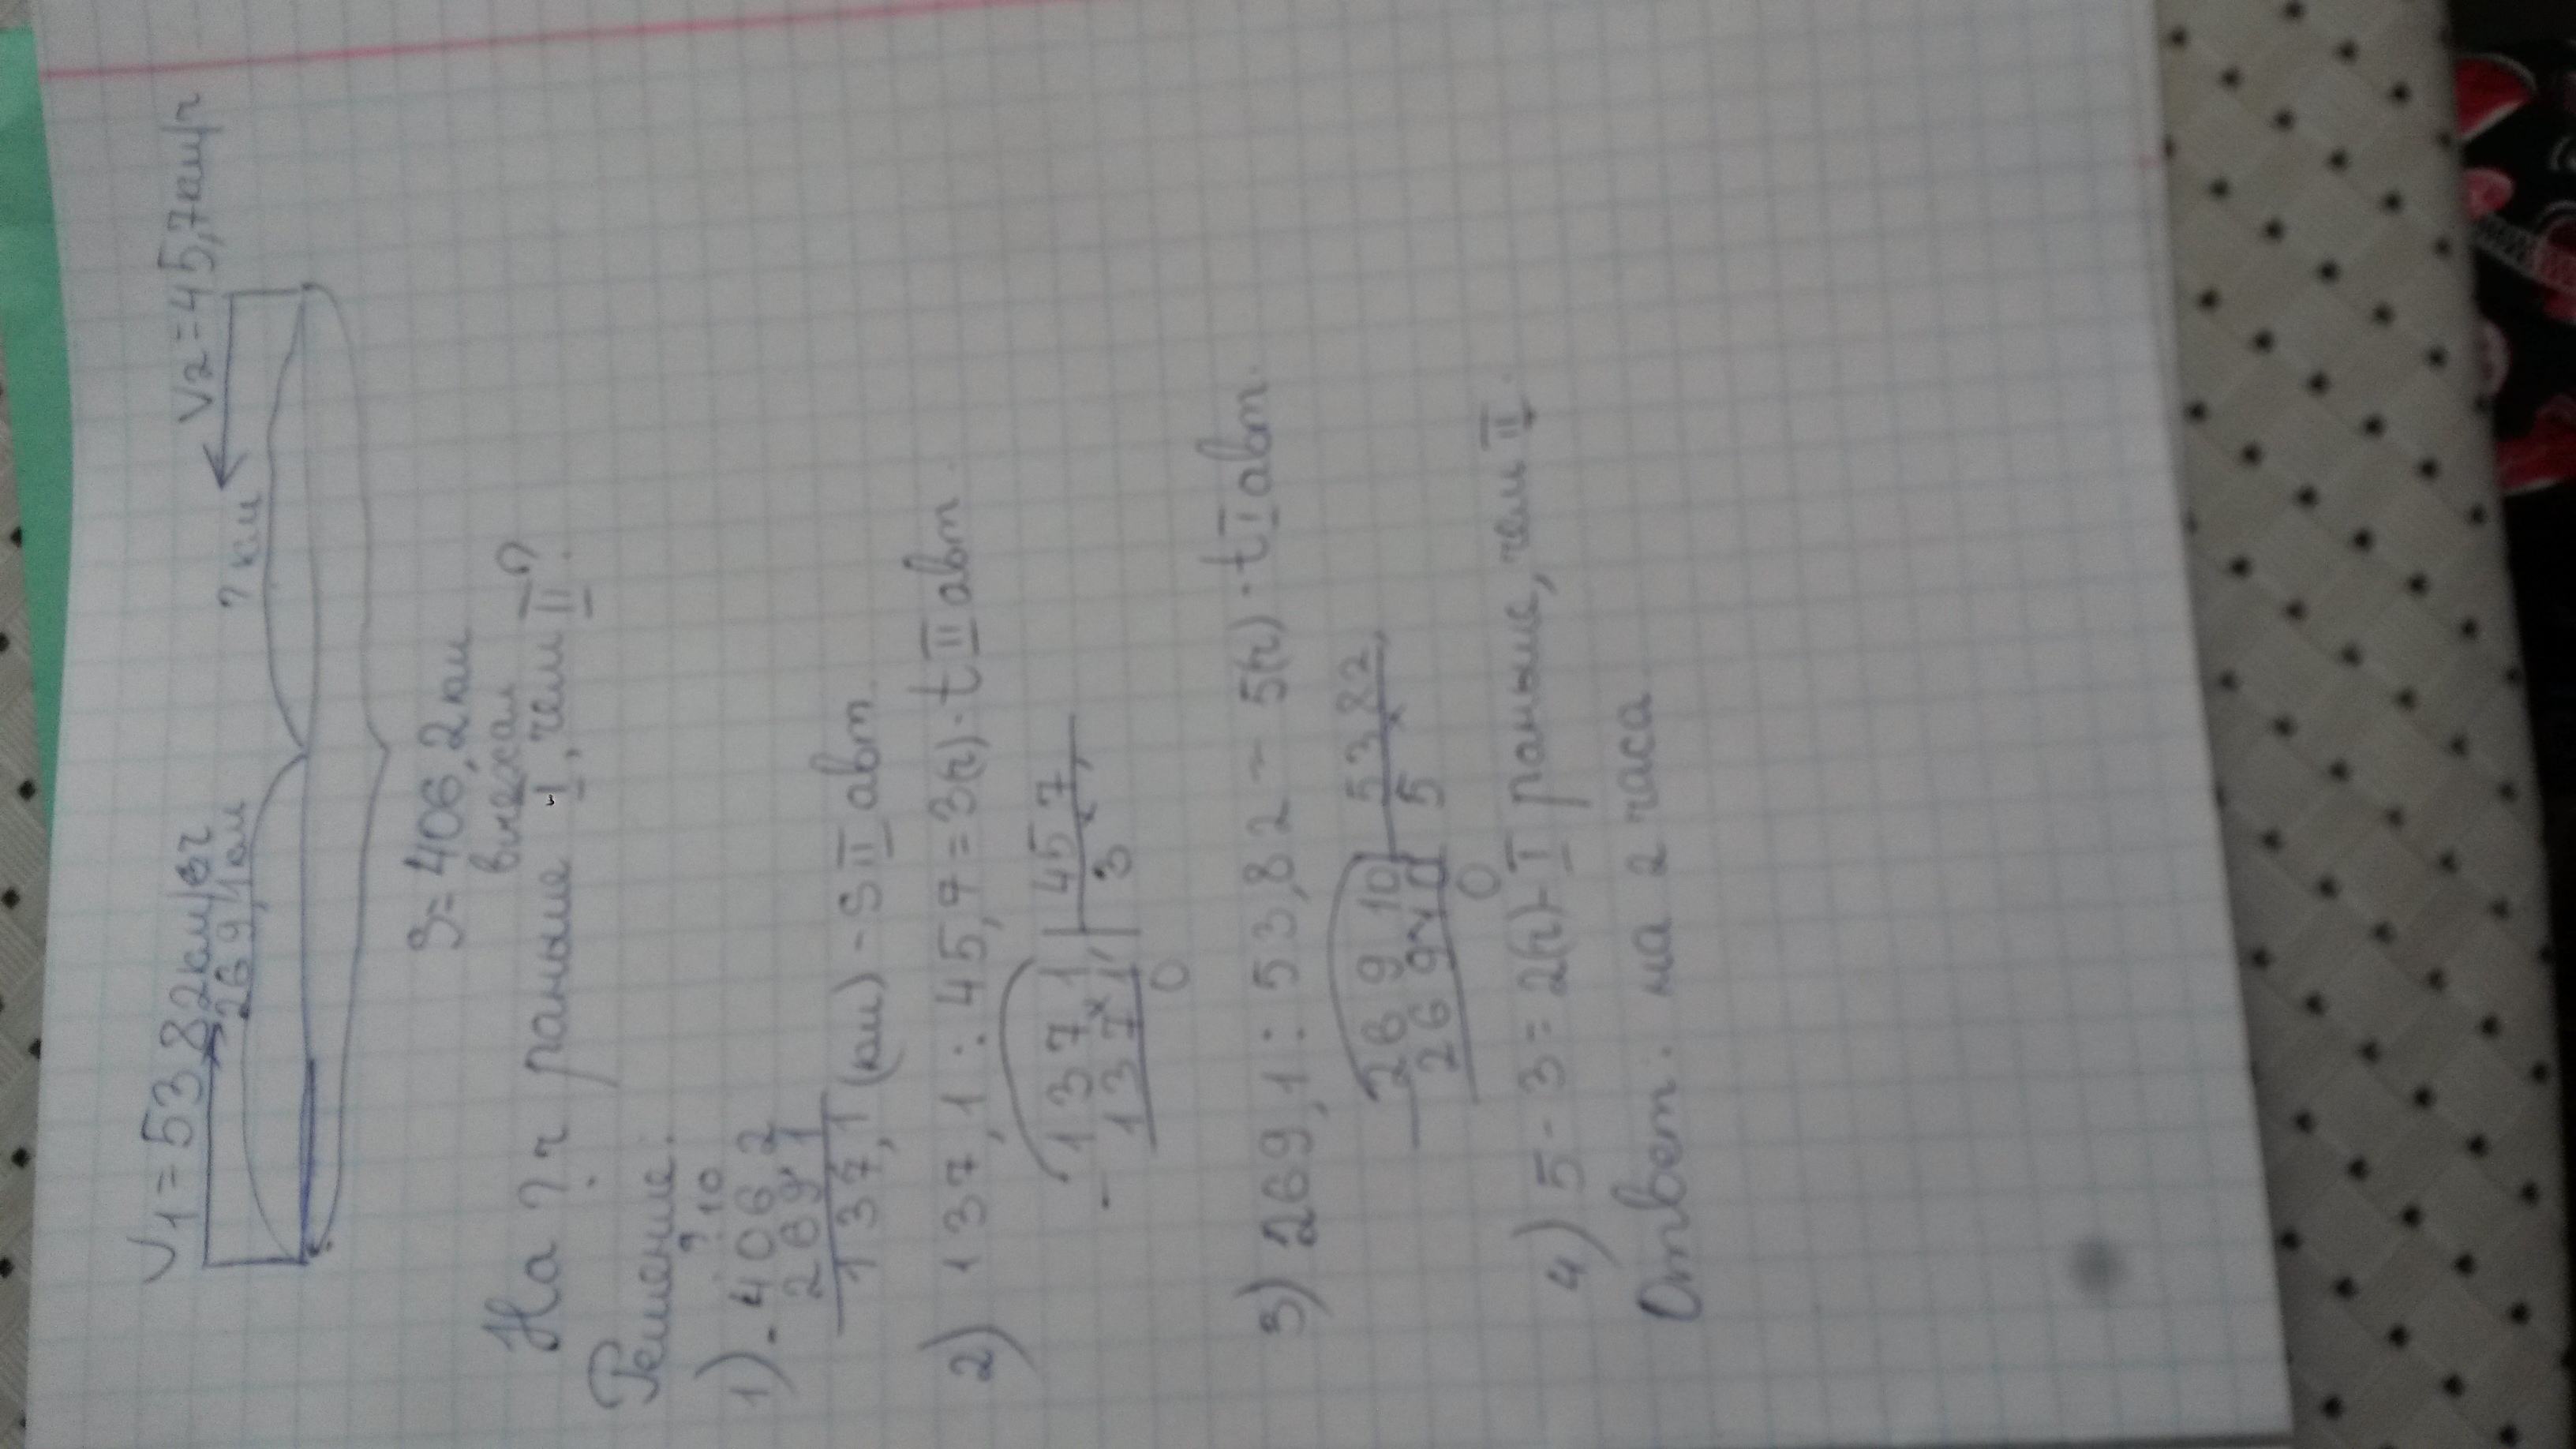 V1=53,82км/ч V2=45,7км/ч
269,1км ? км
S=406,2км
выехал
На ? ч раньше I, чем II?
Решение:
9 10
1) - 406,2
269,1
137,1 (км) - S II авт.
2) 137,1 : 45,7 = 3(ч) - t II авт.
- 1371 | 457
1371 | 3
0
3) 269,1 : 53,82 = 5(ч) - t I авт.
- 26910 | 5382
26910 | 5
0
4) 5 - 3 = 2(ч) - I раньше, чем II.
Ответ: на 2 часа